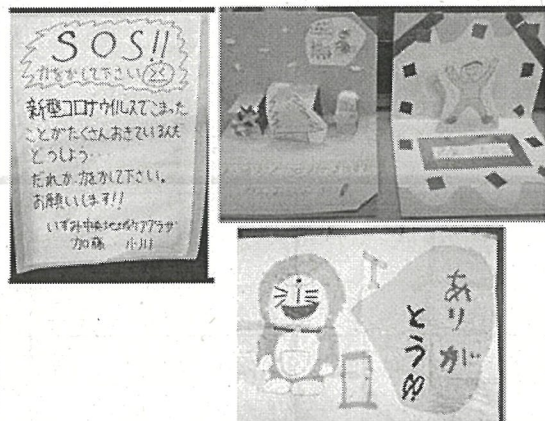 SOS!!
力をかして下さい
新型コロナウイルスでこまった
ことがたくさんおきているんだ
どうしよう…
だれか力をかして下さい。
お願いします!!
いずみ中央地域ケアプラザ
加藤 小川
ありが
とう!!